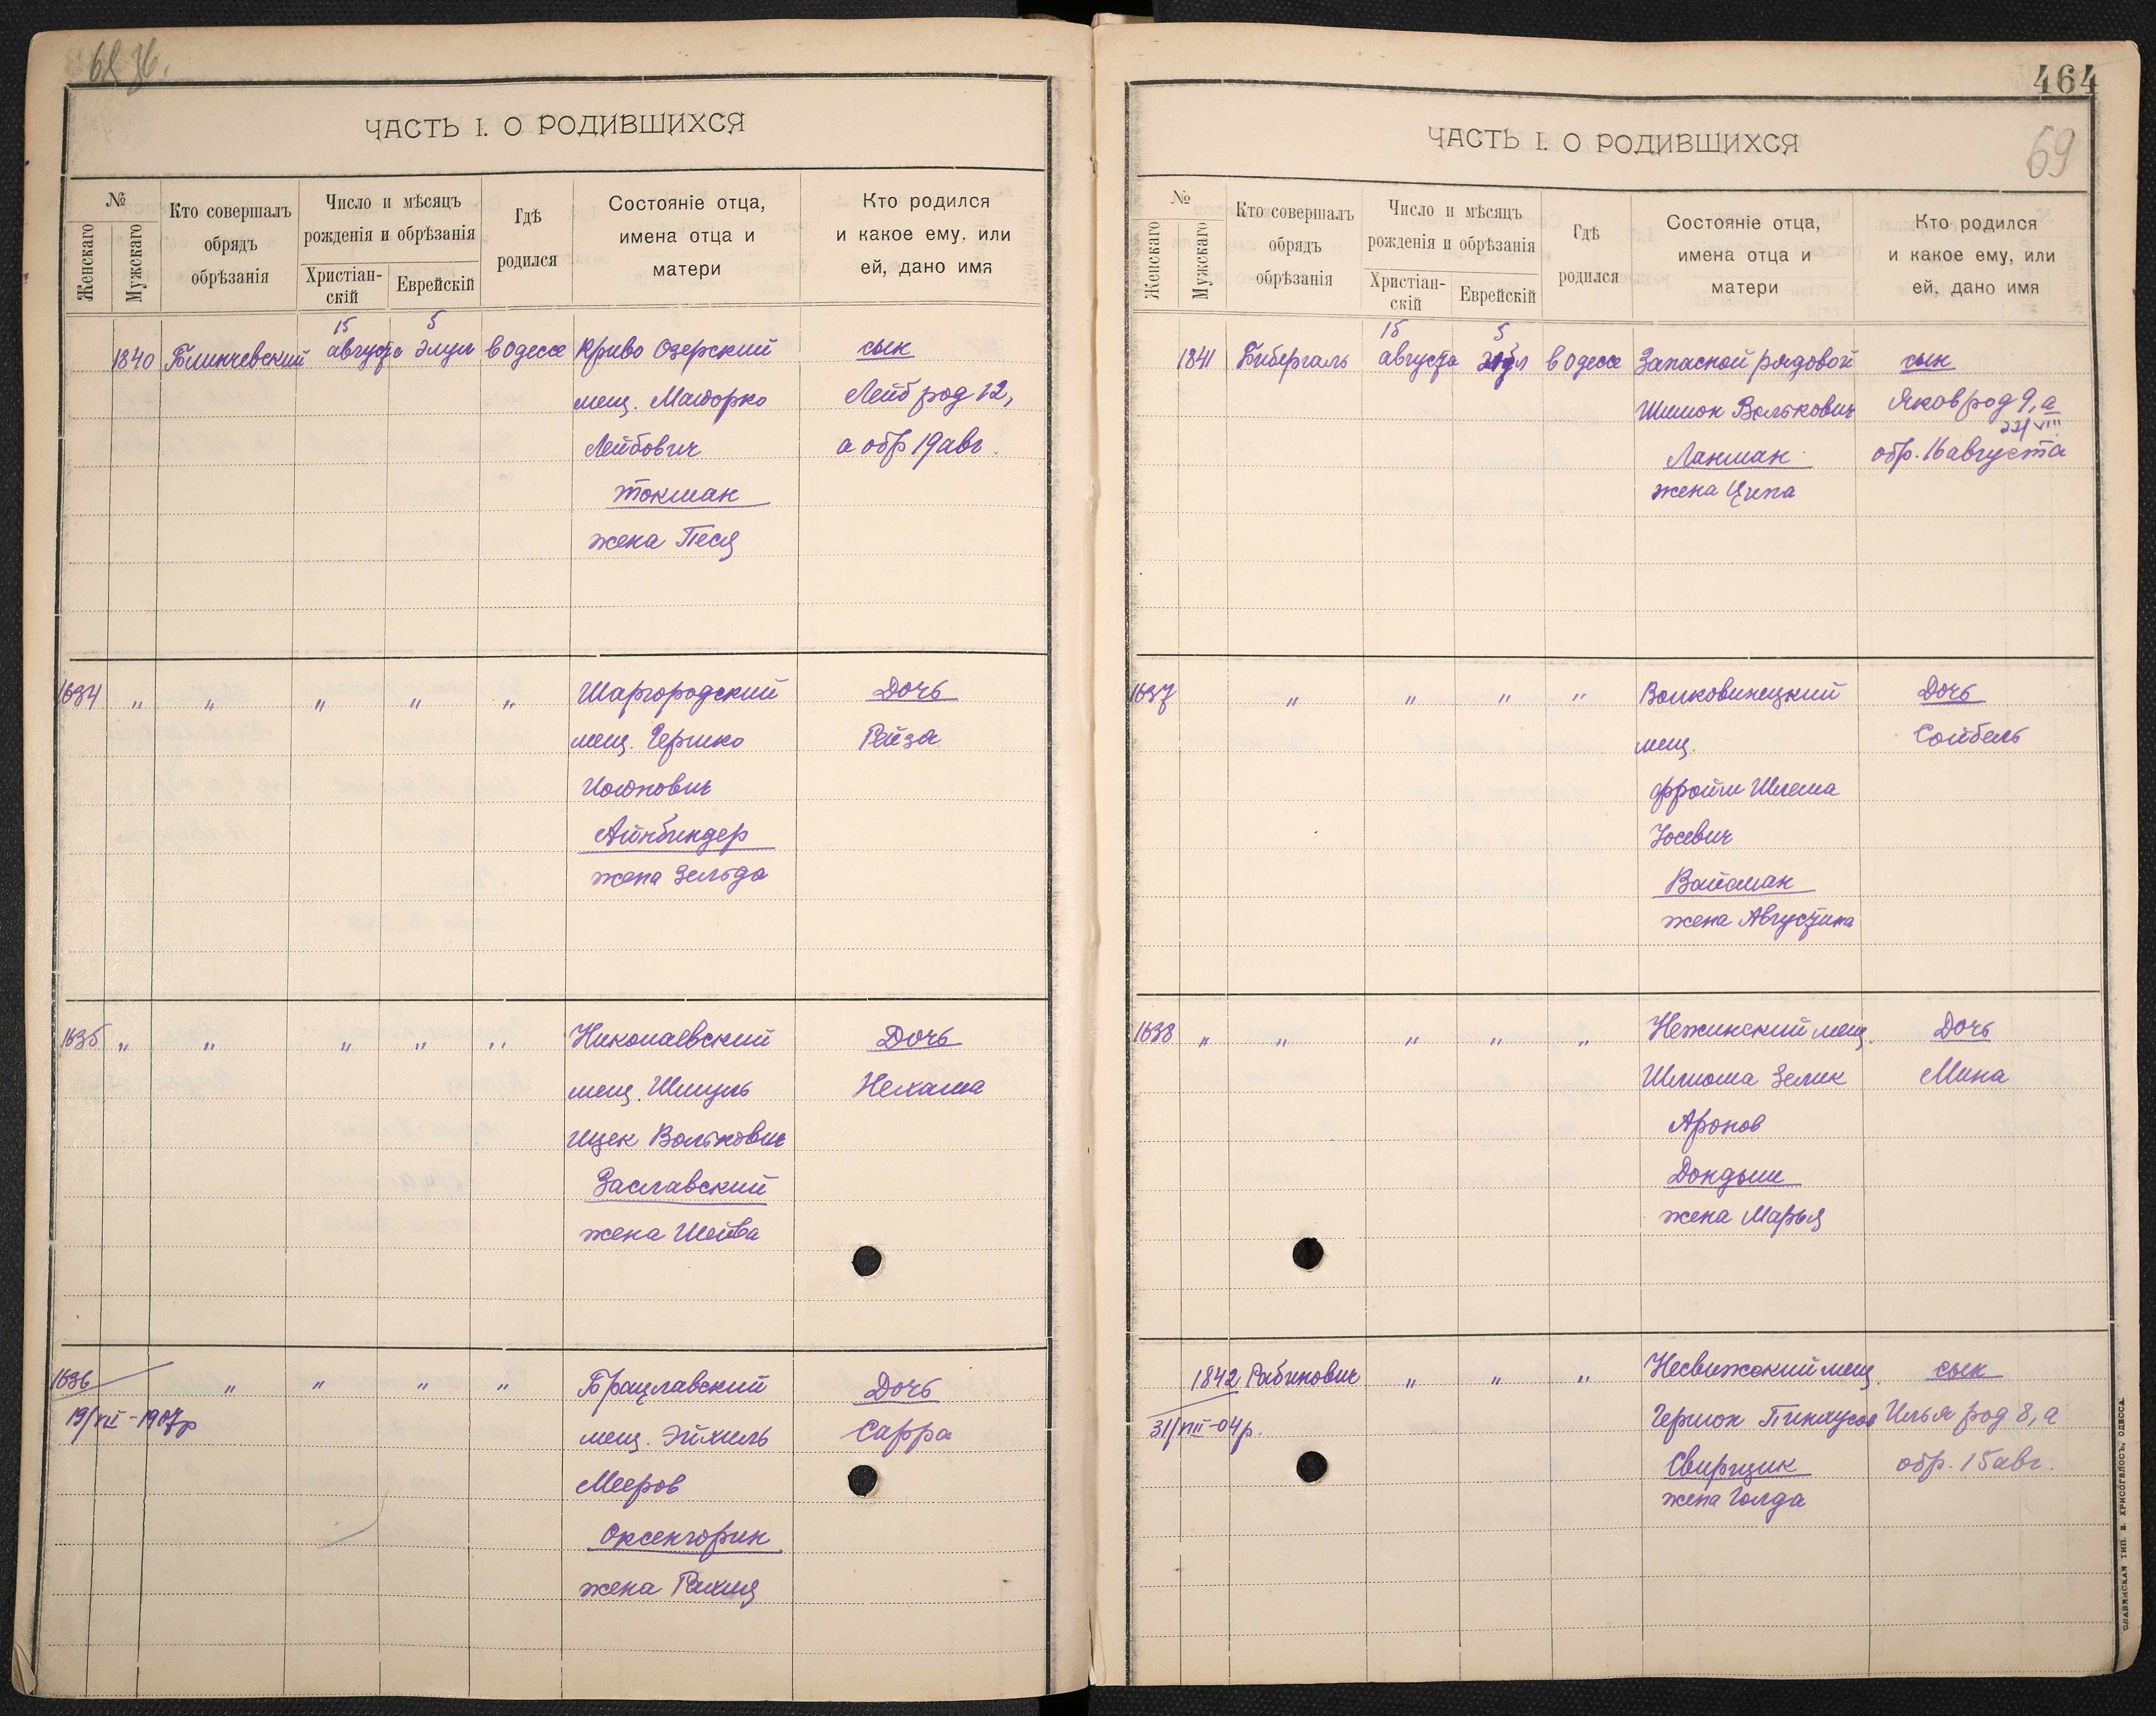 68 36.
ЧАСТЬ I. О РОДИВШИХСЯ
№
Женскаго
Мужскаго
Кто совершалъ
обрядъ
обрѣзанія
Число и мѣсяцъ
рожденія и обрѣзанія
Христіан-
скій
Еврейскій
Гдѣ
родился
Состояніе отца,
имена отца и
матери
Кто родился
и какое ему, или
ей, дано имя
15 5
1840 Блинчевский августа элул в Одессе Криво Озерский сын
мещ. Маиорко Лейб род 12,
Лейбович а обр 19 авг.
Токман
жена Песя
1634 " " " " " Шаргородский Дочь
мещ. Гершко Рейза
Айнбиндер
жена Зельда
1635 " " " " " Николаевский Дочь
мещ. Шмуль Нехама
Ицек Волькович
Заславский
жена Шейва
1636 " " " " Брацлавский Дочь
19/VII-1907р мещ. Эйхиль Сарра
Мееров
Оксенгорин
жена Рахиля
464
69
ЧАСТЬ I. О РОДИВШИХСЯ
№
Женскаго
Мужскаго
Кто совершалъ
обрядъ
обрѣзанія
Число и мѣсяцъ
рожденія и обрѣзанія
Христіан-
скій
Еврейскій
Гдѣ
родился
Состояніе отца,
имена отца и
матери
Кто родился
и какое ему, или
ей, дано имя
15 5
1841 Бибергаль августа в Одессе Запасной рядовой сын
Шимон Волькович Яков род 9, а
22/VIII
Ланман обр. 16 августа
жена Ципа
1637 " " " " Волковинецкий Дочь
мещ. Сойбель
Фройм Шлема
Иосевич
Вайсман
жена Августина
1638 " " " " " Нежинский мещ. Дочь
Шлиома Зелик Мина
Аронов
Дондыш
жена Марья
1842 Рабинович " " " Несвижский мещ. сын
31/VIII-04р. Гершон Пинхусов Илья род 8, а
Свирщик обр. 15 авг.
жена Голда
СЛАВЯНСКАЯ ТИП. Н. ХРИСОГЕЛОСЪ, ОДЕССА